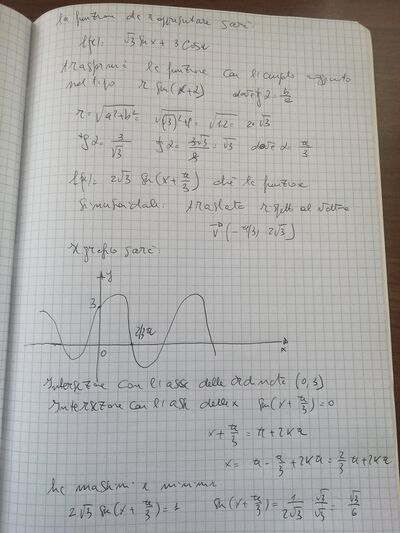 la funzione da rappresentare sarà
f(x)= √3 sen x + 3 cos x
trasformo la funzione con l'angolo aggiunto
nel tipo r sin(x+α) dove tg α = b/a
r = √(a²+b²) = √((√3)²+9) = √12 = 2·√3
tg α = 3/√3 tg α = 3√3/3 = √3 dove α = π/3
f(x)= 2√3 sen(x + π/3) che è la funzione
sinusoidale traslata rispetto al vettore
v (-π/3, 2√3)
Il grafico sarà:
y
3
0
2/3π
x
Intersezione con l'asse delle ordinate (0,3)
Intersezione con l'asse delle x sen(x + π/3) = 0
x + π/3 = π + 2Kπ
x = π - π/3 + 2Kπ = 2/3 π + 2Kπ
ha massimi e minimi
2√3 sen(x + π/3) = 1 sen(x + π/3) = 1/2√3 √3/√3 = √3/6